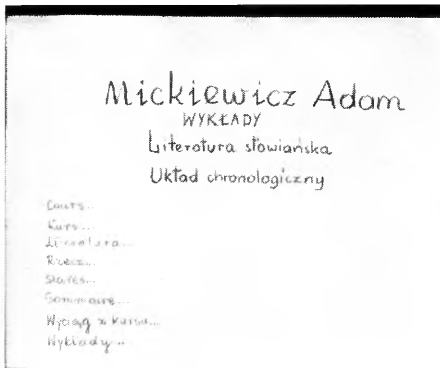 Mickiewicz Adam
WYKŁADY
Literatura słowiańska
Układ chronologiczny
Cours...
Kurs...
Literatura...
Rzecz...
Slaves...
Sommaire...
Wyciąg z kursu...
Wykłady...